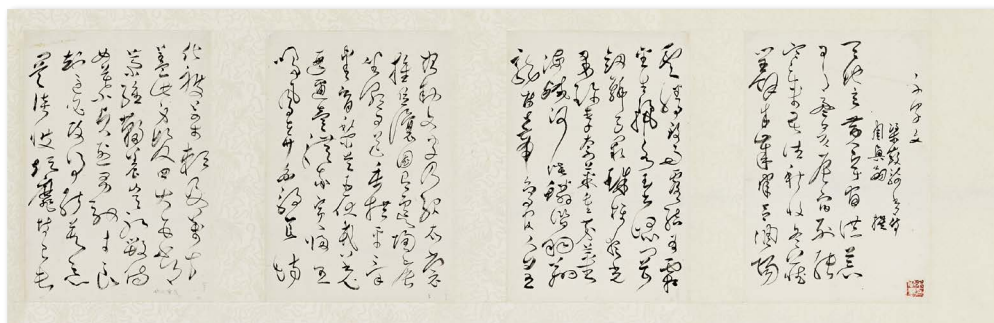 千字文
梁敕散騎員外郎
周興嗣 撰
天地玄黃宇宙洪荒
日月盈昃辰宿列張
寒來暑往秋收冬藏
閏餘成歲律呂調陽
雲騰致雨露結為霜
金生麗水玉出崑岡
劍號巨闕珠稱夜光
果珍李柰菜重芥薑
海鹹河淡鱗潛羽翔
龍師火帝鳥官人皇
始制文字乃服衣裳
推位讓國有虞陶唐
坐朝問道垂拱平章
愛育黎首臣伏戎羌
遐邇壹體率賓歸王
鳴鳳在樹白駒食場
化被草木賴及萬方
蓋此身髮四大五常
恭惟鞠養豈敢毀傷
女慕貞絜男效才良
知過必改得能莫忘
罔談彼短靡恃己長